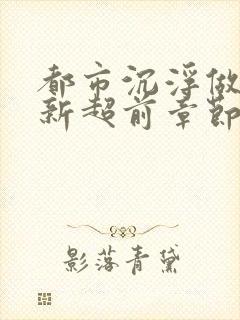 都市沉浮做
新超前章節
影落青黛